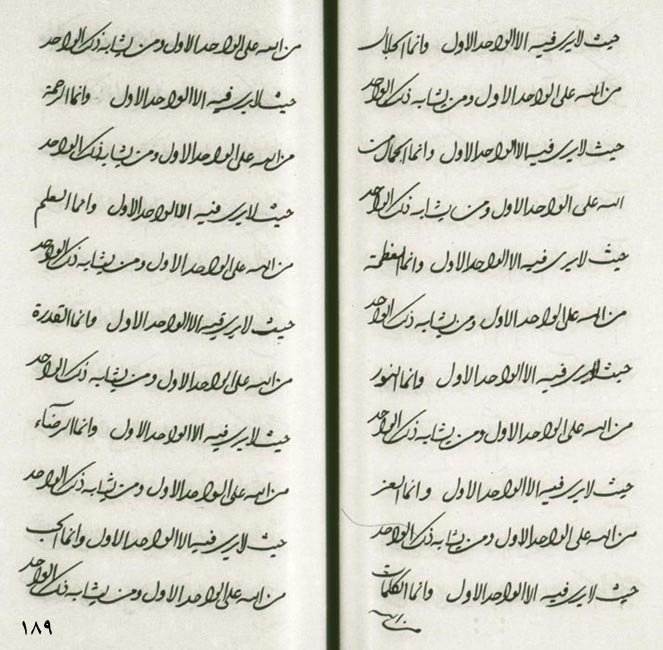 حيث لا يرى فيه الا الواحد الاول وانما الجلال
من الله على الواحد الاول ومن يشابه ذلك الواحد
حيث لا يرى فيه الا الواحد الاول وانما الجمال من
الله على الواحد الاول ومن يشابه ذلك الواحد
حيث لا يرى فيه الا الواحد الاول وانما العظمة
من الله على الواحد الاول ومن يشابه ذلك الواحد
حيث لا يرى فيه الا الواحد الاول وانما النور
من الله على الواحد الاول ومن يشابه ذلك الواحد
حيث لا يرى فيه الا الواحد الاول وانما العز
من الله على الواحد الاول ومن يشابه ذلك الواحد
حيث لا يرى فيه الا الواحد الاول وانما الكلمات
من الله
من الله على الواحد الاول ومن يشابه ذلك الواحد
حيث لا يرى فيه الا الواحد الاول وانما الرحمة
من الله على الواحد الاول ومن يشابه ذلك الواحد
حيث لا يرى فيه الا الواحد الاول وانما العلم
من الله على الواحد الاول ومن يشابه ذلك الواحد
حيث لا يرى فيه الا الواحد الاول وانما القدرة
من الله على الواحد الاول ومن يشابه ذلك الواحد
حيث لا يرى فيه الا الواحد الاول وانما الرضآء
من الله على الواحد الاول ومن يشابه ذلك الواحد
حيث لا يرى فيه الا الواحد الاول وانما الحب
من الله على الواحد الاول ومن يشابه ذلك الواحد
١٨٩